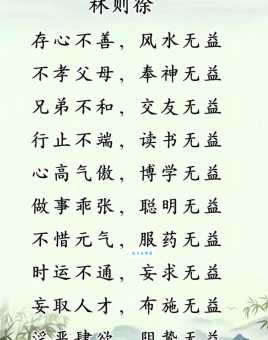 林则徐
存心不善，风水无益
不孝父母，奉神无益
兄弟不和，交友无益
行止不端，读书无益
心高气傲，博学无益
做事乖张，聪明无益
不惜元气，服药无益
时运不通，妄求无益
妄取人才，布施无益
淫恶肆欲，阴骘无益